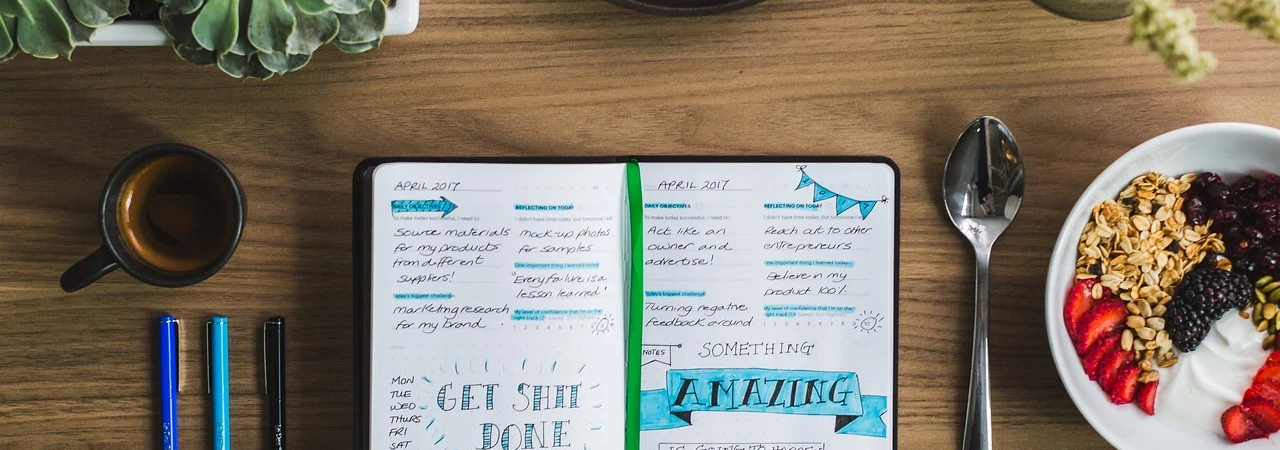 APRIL 2017
DAILY OBJECTIVES
To make today successful, I need to:
Source materials
for my products
from different
suppliers!
Today's biggest challenge
marketing research
for my brand
REFLECTING ON TODAY
I didn't have time today, but tomorrow I will
mock-up photos
for samples
One important thing I learned today
"Every failure is a
lesson learned"
My level of confidence that I'm on the
right track
1 2 3 4 5 6 7 8 9
MON
TUE
WED
THURS
FRI
SAT
GET SHIT
DONE
APRIL 2017
DAILY OBJECTIVES
To make today successful, I need to:
Act like an
owner and
advertise!
Today's biggest challenge
Turning negative
feedback around
REFLECTING ON TODAY
I didn't have time today, but tomorrow I will
Reach out to other
entrepreneurs
One important thing I learned today
Believe in my
product 100%
My level of confidence that I'm on the
right track
1 2 3 4 5 6 7 8 9
NOTES
SOMETHING
AMAZING
IS GOING TO HAPPEN